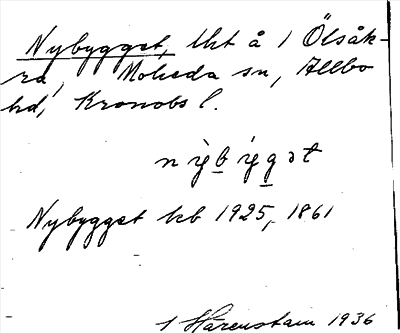 Nybygget, lht å 1 Ölsåk-
ra, Moheda sn, Allbo
hd, Kronobs l.
nỳb́yg̱ət
Nybygget kb 1925, 1861
1 Härenstam 1936